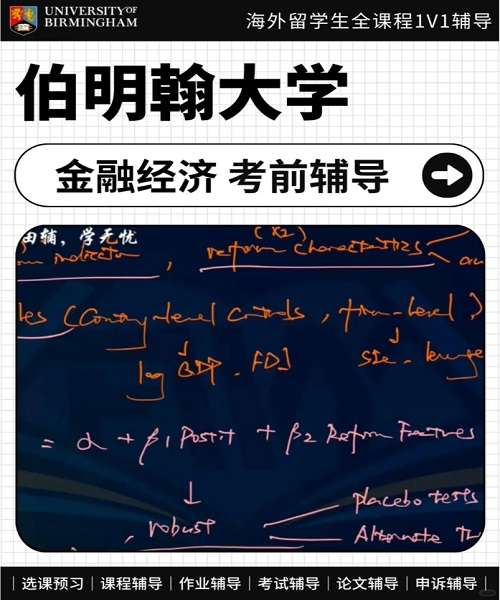 UNIVERSITY OF
BIRMINGHAM
海外留学生全课程1V1辅导
伯明翰大学
金融经济 考前辅导
辅，学无忧
(X2)
indicator, reform characteristics
(Country-level controls, firm-level)
log GDP - FDI size -
= α + β1 Postit + β2 Reform Features
↓ placebo tests
, robust Alternate
｜选课预习｜课程辅导｜作业辅导｜考试辅导｜论文辅导｜申诉辅导｜